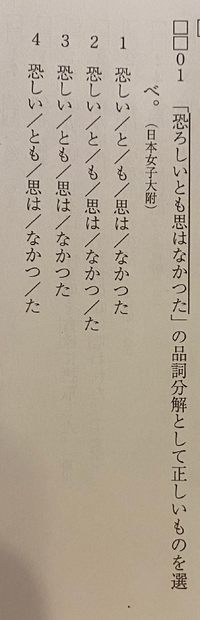 □□01 「恐ろしいとも思はなかつた」の品詞分解として正しいものを選
べ。(日本女子大附)
1 恐しい／と／も／思は／なかつた
2 恐しい／と／も／思は／なかつ／た
3 恐しい／とも／思は／なかつた
4 恐しい／とも／思は／なかつ／た